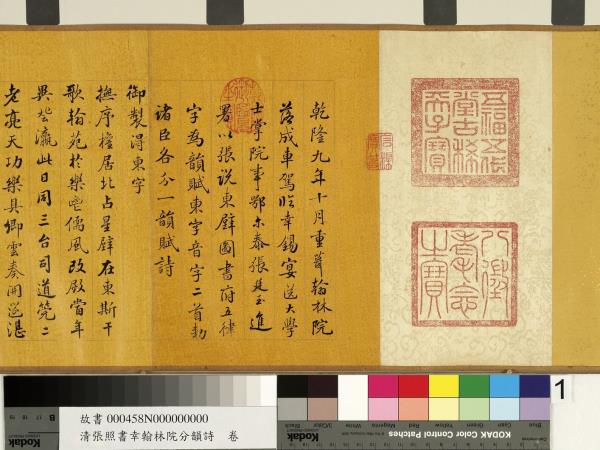 五福五代
堂古稀
天子寶
八徵
耄念
之寶
乾隆九年十月重葺翰林院
落成車駕臨幸錫宴送大學
士掌院事鄂尔泰張廷玉進
署以張說東壁圖書府五律
字為韻賦東字音字二首勅
諸臣各分一韻賦詩
御製得東字
撫序檐居北占星壁在東斯干
歌翰苑於樂儒風改殿當年
異瀛此日同三台司道筦二
老亮天功樂具卿雲奏開筵湛
故書 000458N000000000
清張照書幸翰林院分韻詩 卷
Kodak
B
KODAK Color Control Patches
Blue Cyan Green Yellow Red Magenta White 3/Color Black
Kodak
1